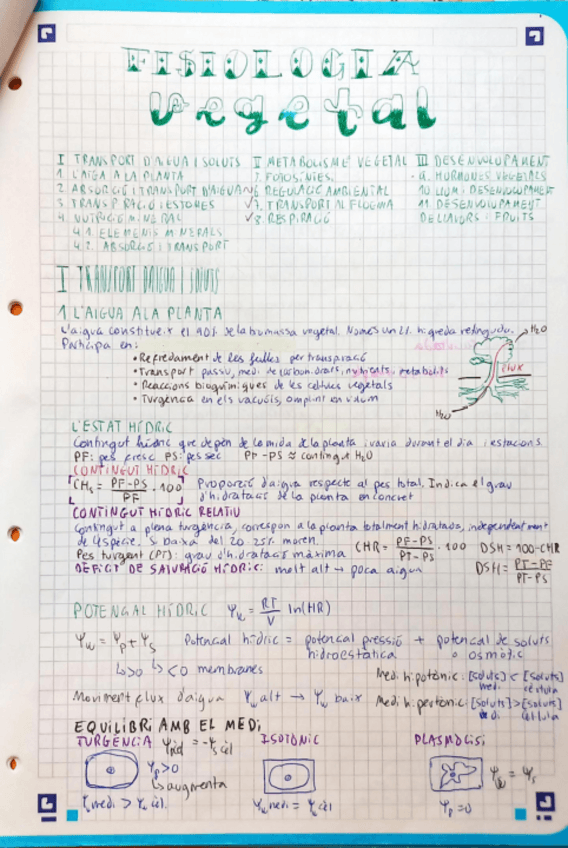 FISIOLOGIA
vegetal
I TRANSPORT D'AIGUA I SOLUTS
1. L'AIGUA A LA PLANTA
2. ABSORCIÓ I TRANSPORT D'AIGUA
3. TRANSPIRACIÓ I ESTOMES
4. NUTRICIÓ MINERAL
4.1. ELEMENTS MINERALS
4.2. ABSORCIÓ I TRANSPORT
II METABOLISME VEGETAL
FOTOSÍNTESI
REGULACIÓ AMBIENTAL
7. TRANSPORT AL FLOEMA
8. RESPIRACIÓ
III DESENVOLUPAMENT
9. HORMONES VEGETALS
10. LLUM I DESENVOLUPAMENT
11. DESENVOLUPAMENT
DE LLAVORS I FRUITS
I TRANSPORT D'AIGUA I SOLUTS
1 L'AIGUA A LA PLANTA
L'aigua constitueix el 90% de la biomassa vegetal. Només un 2% hi queda retinguda.
Participa en:
• Refredament de les fulles per transpiració
• Transport passiu, medi de carbohidrats, nutrients, metabolits
• Reaccions bioquímiques de les cèl·lules vegetals
• Turgència en els vacúols, omplint en volum
H₂O
FLUX
H₂O
L'ESTAT HÍDRIC
Contingut hídric que depèn de la mida de la planta i varia durant el dia i estacions.
PF: pes fresc PS: pes sec PF-PS ≈ contingut H₂O
CONTINGUT HÍDRIC
CH = PF-PS / PF · 100 Proporció d'aigua respecte al pes total. Indica el grau
d'hidratació de la planta en concret
CONTINGUT HÍDRIC RELATIU
Contingut a plena turgència, correspon a la planta totalment hidratada, independentment
de l'espècie. Si baixa del 20-25% moren.
Pes turgent (PT): grau d'hidratació màxima
CHR = PF-PS / PT-PS · 100 DSH = 100-CHR
DÈFICIT DE SATURACIÓ HÍDRIC: molt alt → poca aigua
DSH = PT-PF / PT-PS
POTENCIAL HÍDRIC Ψw = RT/V ln(HR)
Ψw = Ψp + Ψs Potencial hídric = potencial pressió + potencial de soluts
hidroestàtica o osmòtic
↳>0 ↳<0 membranes
Medi hipotònic: [soluts] medi < [soluts] cèl·lula
Moviment flux d'aigua Ψw alt → Ψw baix
Medi hipertònic: [soluts] medi > [soluts] cèl·lula
EQUILIBRI AMB EL MEDI
TURGÈNCIA
= -Ψs cèl
Ψp>0
↳ augmenta
medi > Ψ cèl.
ISOTÒNIC
Ψw medi = Ψw cèl
PLASMÒLISI
Ψw = Ψs
Ψp=0